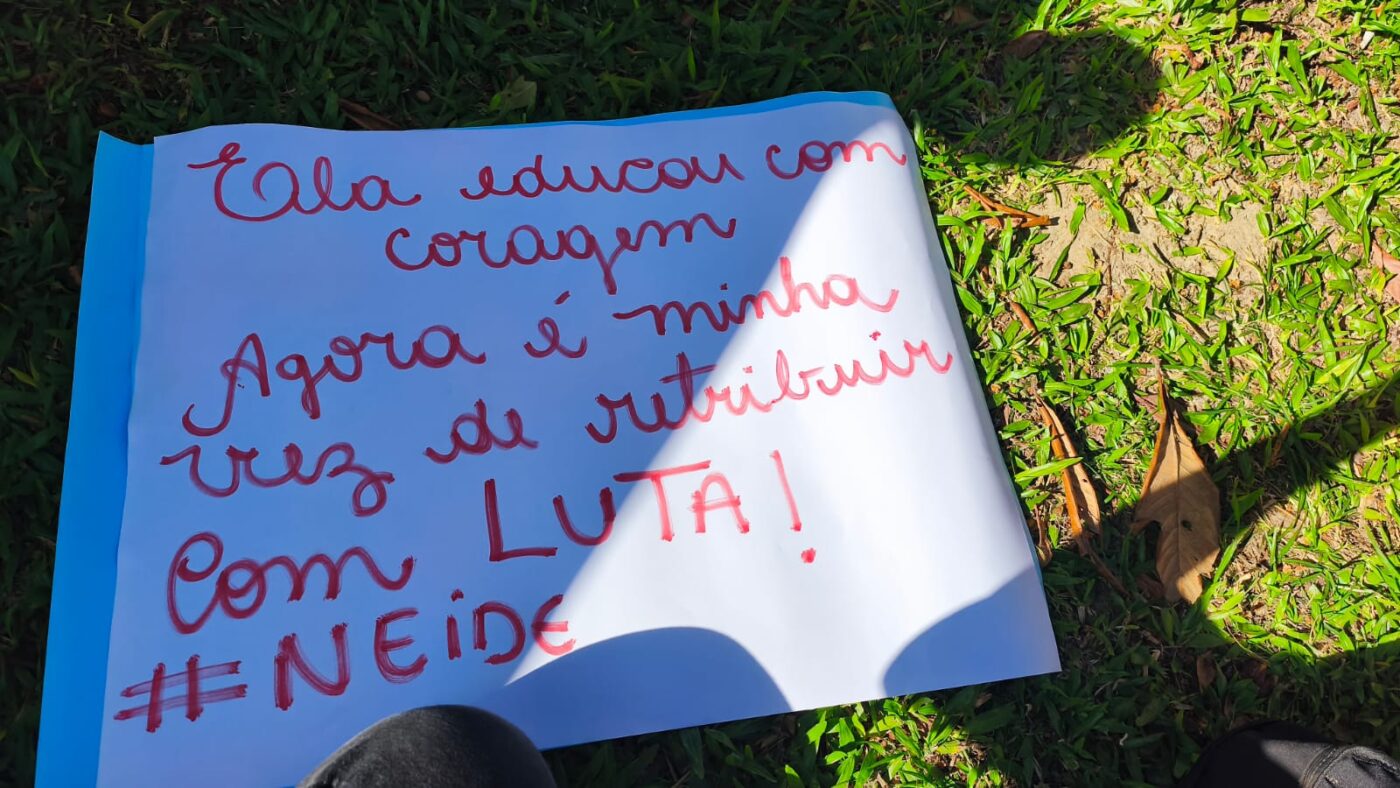 Ela educou com
coragem
Agora é minha
vez de retribuir
Com LUTA!
#NEIDE